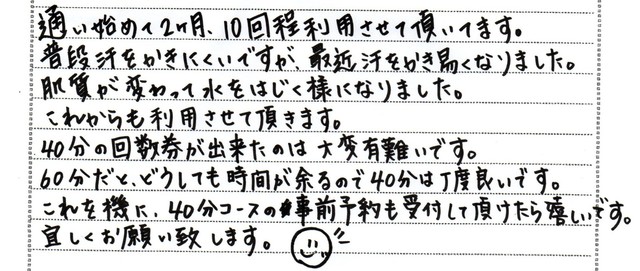 通い始めて2ヶ月、10回程利用させて頂いてます。
普段汗をかきにくいですが、最近汗をかき易くなりました。
肌質が変わって水をはじく様になりました。
これからも利用させて頂きます。
40分の回数券が出来たのは大変有難いです。
60分だと、どうしても時間が余るので40分は丁度良いです。
これを機に、40分コースの事前予約も受付して頂けたら嬉しいです。
宜しくお願い致します。